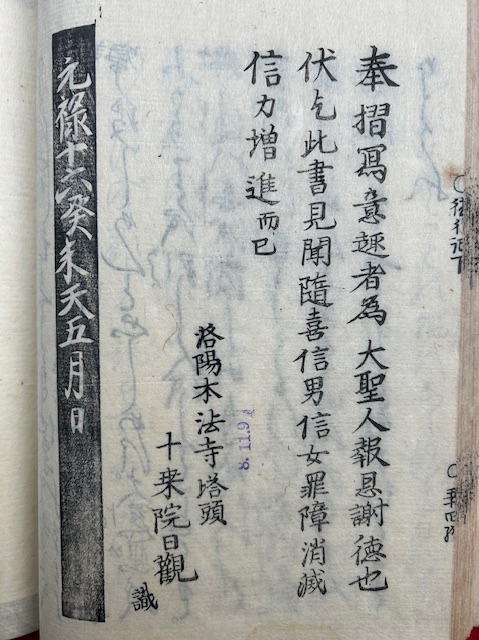 奉摺寫意趣者為大聖人報恩謝徳也
伏乞此書見聞隨喜信男信女罪障消滅
信力増進而已
洛陽本法寺塔頭
十乗院日觀
識
元祿十六癸未天五月日
8.11.9